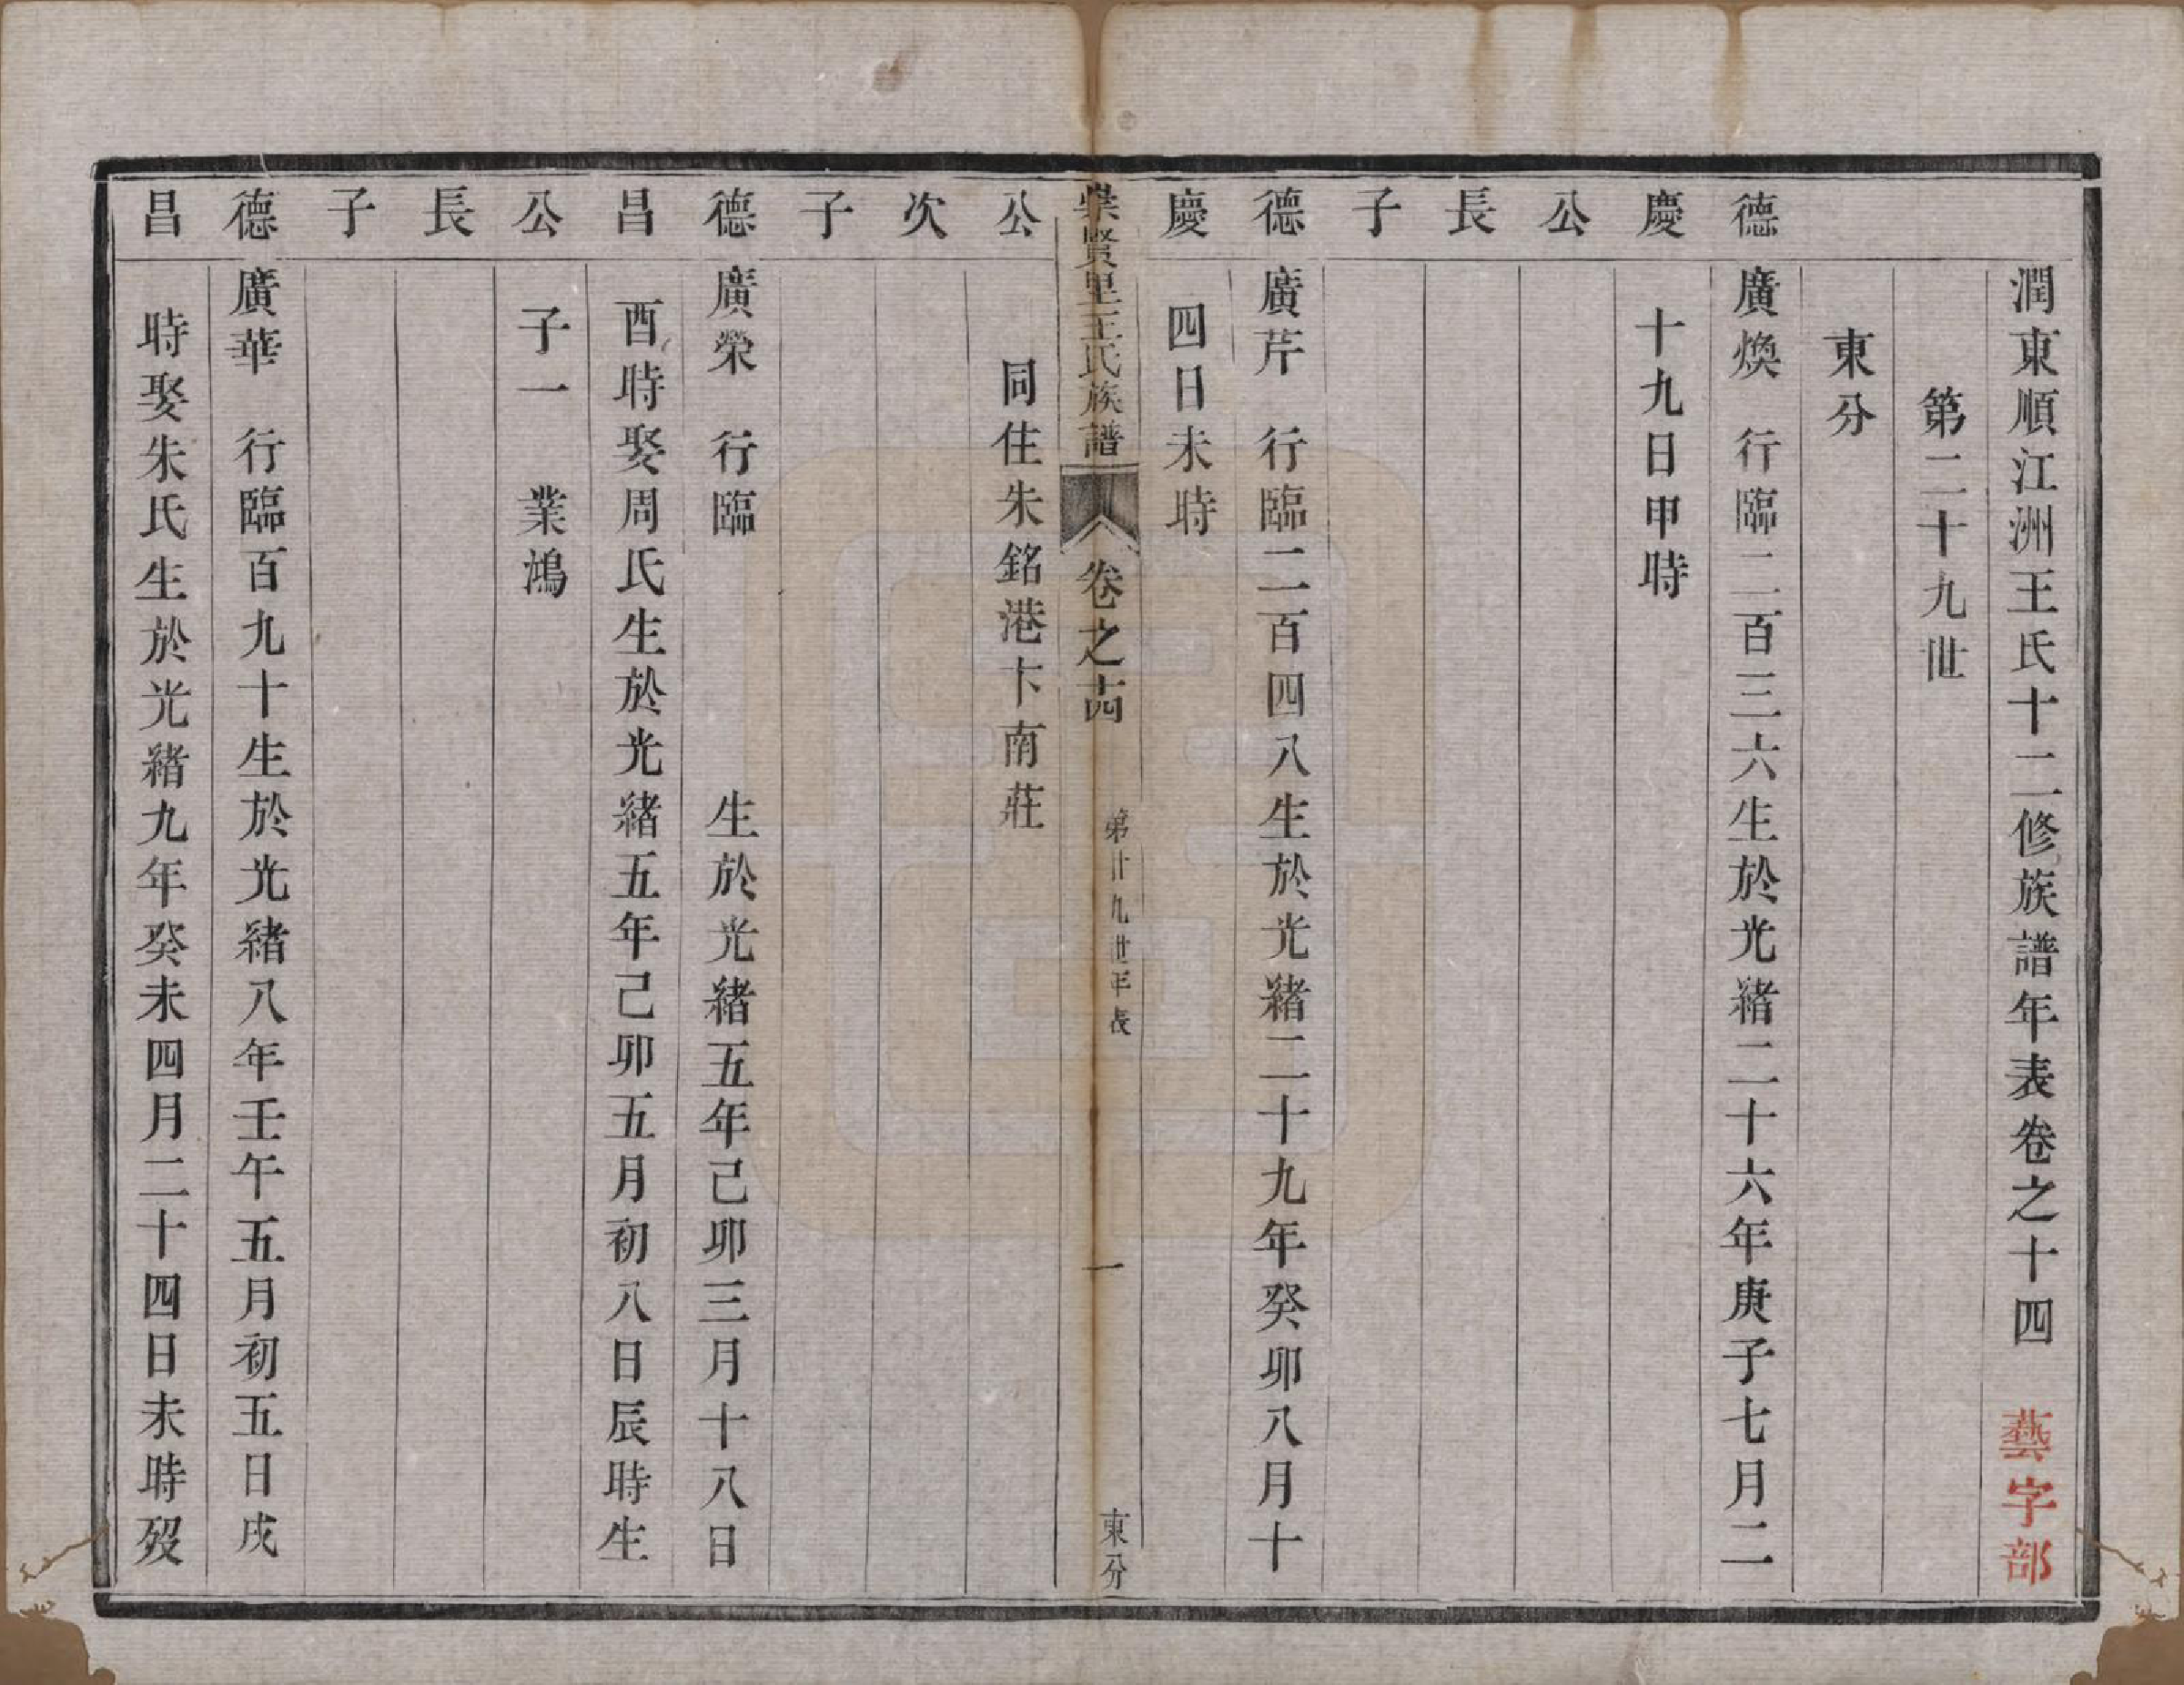 潤東順江洲王氏十二修族譜年表卷之十四 藝字部
第二十九世
東分
德 廣煥 行臨二百三六生於光緒二十六年庚子七月二
慶 十九日甲時
公
長
子
德 廣芹 行臨二百四八生於光緒二十九年癸卯八月十
慶 四日未時
崇賢里王氏族譜 卷之十四 第廿九世年表 一 東分
公 同住朱銘港卞南莊
次
子
德 廣榮 行臨 生於光緒五年己卯三月十八日
昌 酉時娶周氏生於光緒五年己卯五月初八日辰時生
公 子一 業鴻
長
子
德 廣華 行臨百九十生於光緒八年壬午五月初五日戌
昌 時娶朱氏生於光緒九年癸未四月二十四日未時歿